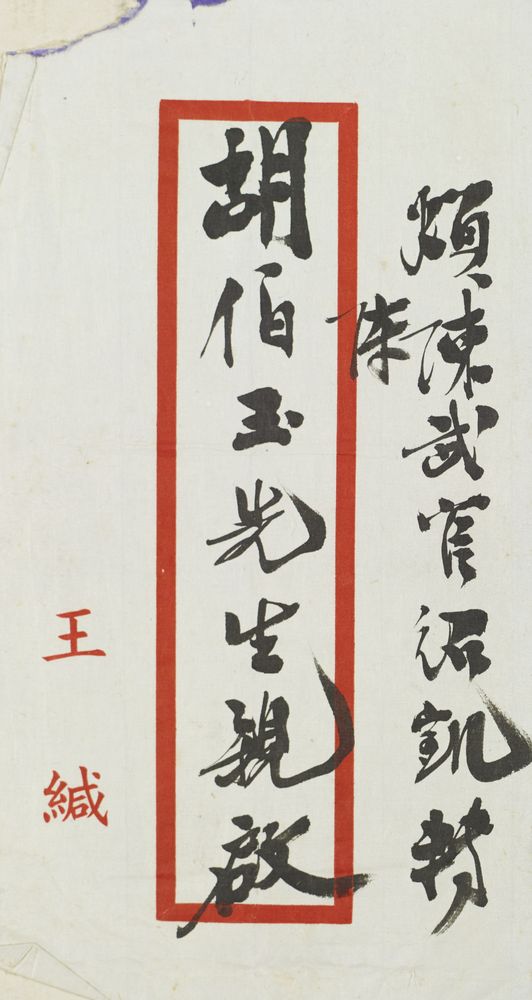 煩陳武官紹凱轉
胡伯玉先生親啟
王緘